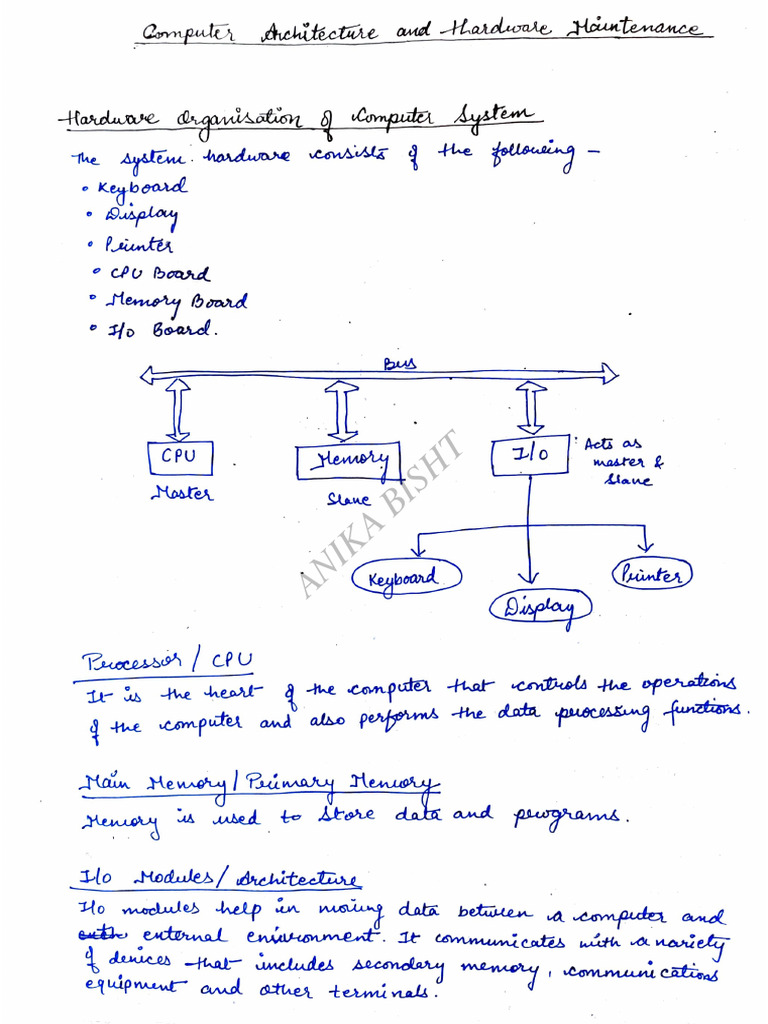 Computer Architecture and Hardware Maintenance
Hardware Organisation of Computer System
The system hardware consists of the following –
• Keyboard
• Display
• Printer
• CPU Board
• Memory Board
• I/o Board.
Bus
CPU
Memory
I/o
Acts as
master &
slave
Master
Slave
Keyboard
Display
Printer
ANIKA BISHT
Processor / CPU
It is the heart of the computer that controls the operations
of the computer and also performs the data processing functions.
Main Memory / Primary Memory
Memory is used to store data and programs.
I/o Modules / Architecture
I/o modules help in moving data between a computer and
external environment. It communicates with a variety
of devices that includes secondary memory, communications
equipment and other terminals.